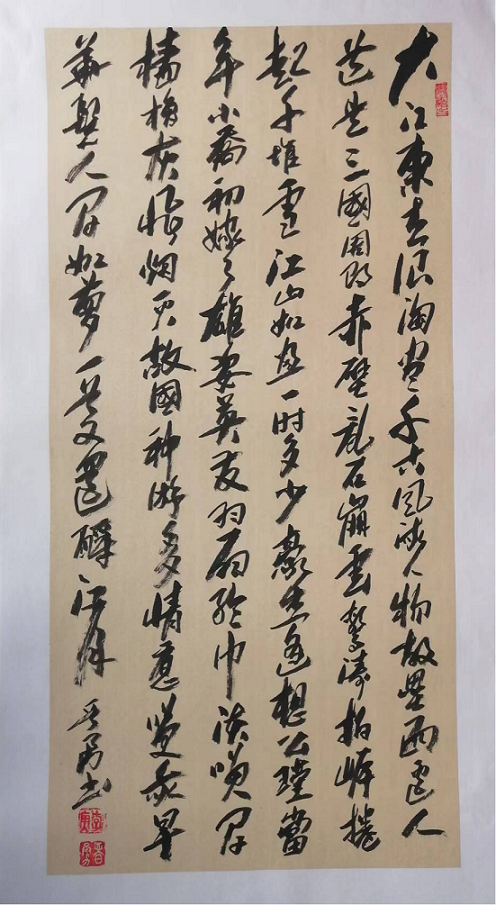 大江東去浪淘盡千古風流人物故壘西邊人
道是三國周郎赤壁亂石崩雲驚濤拍岸捲
起千堆雪江山如畫一時多少豪杰遙想公瑾當
年小喬初嫁了雄姿英發羽扇綸巾談笑間
檣櫓灰飛烟灭故國神游多情應笑我早
華髮人間如夢一尊還酹江月
晋勇书